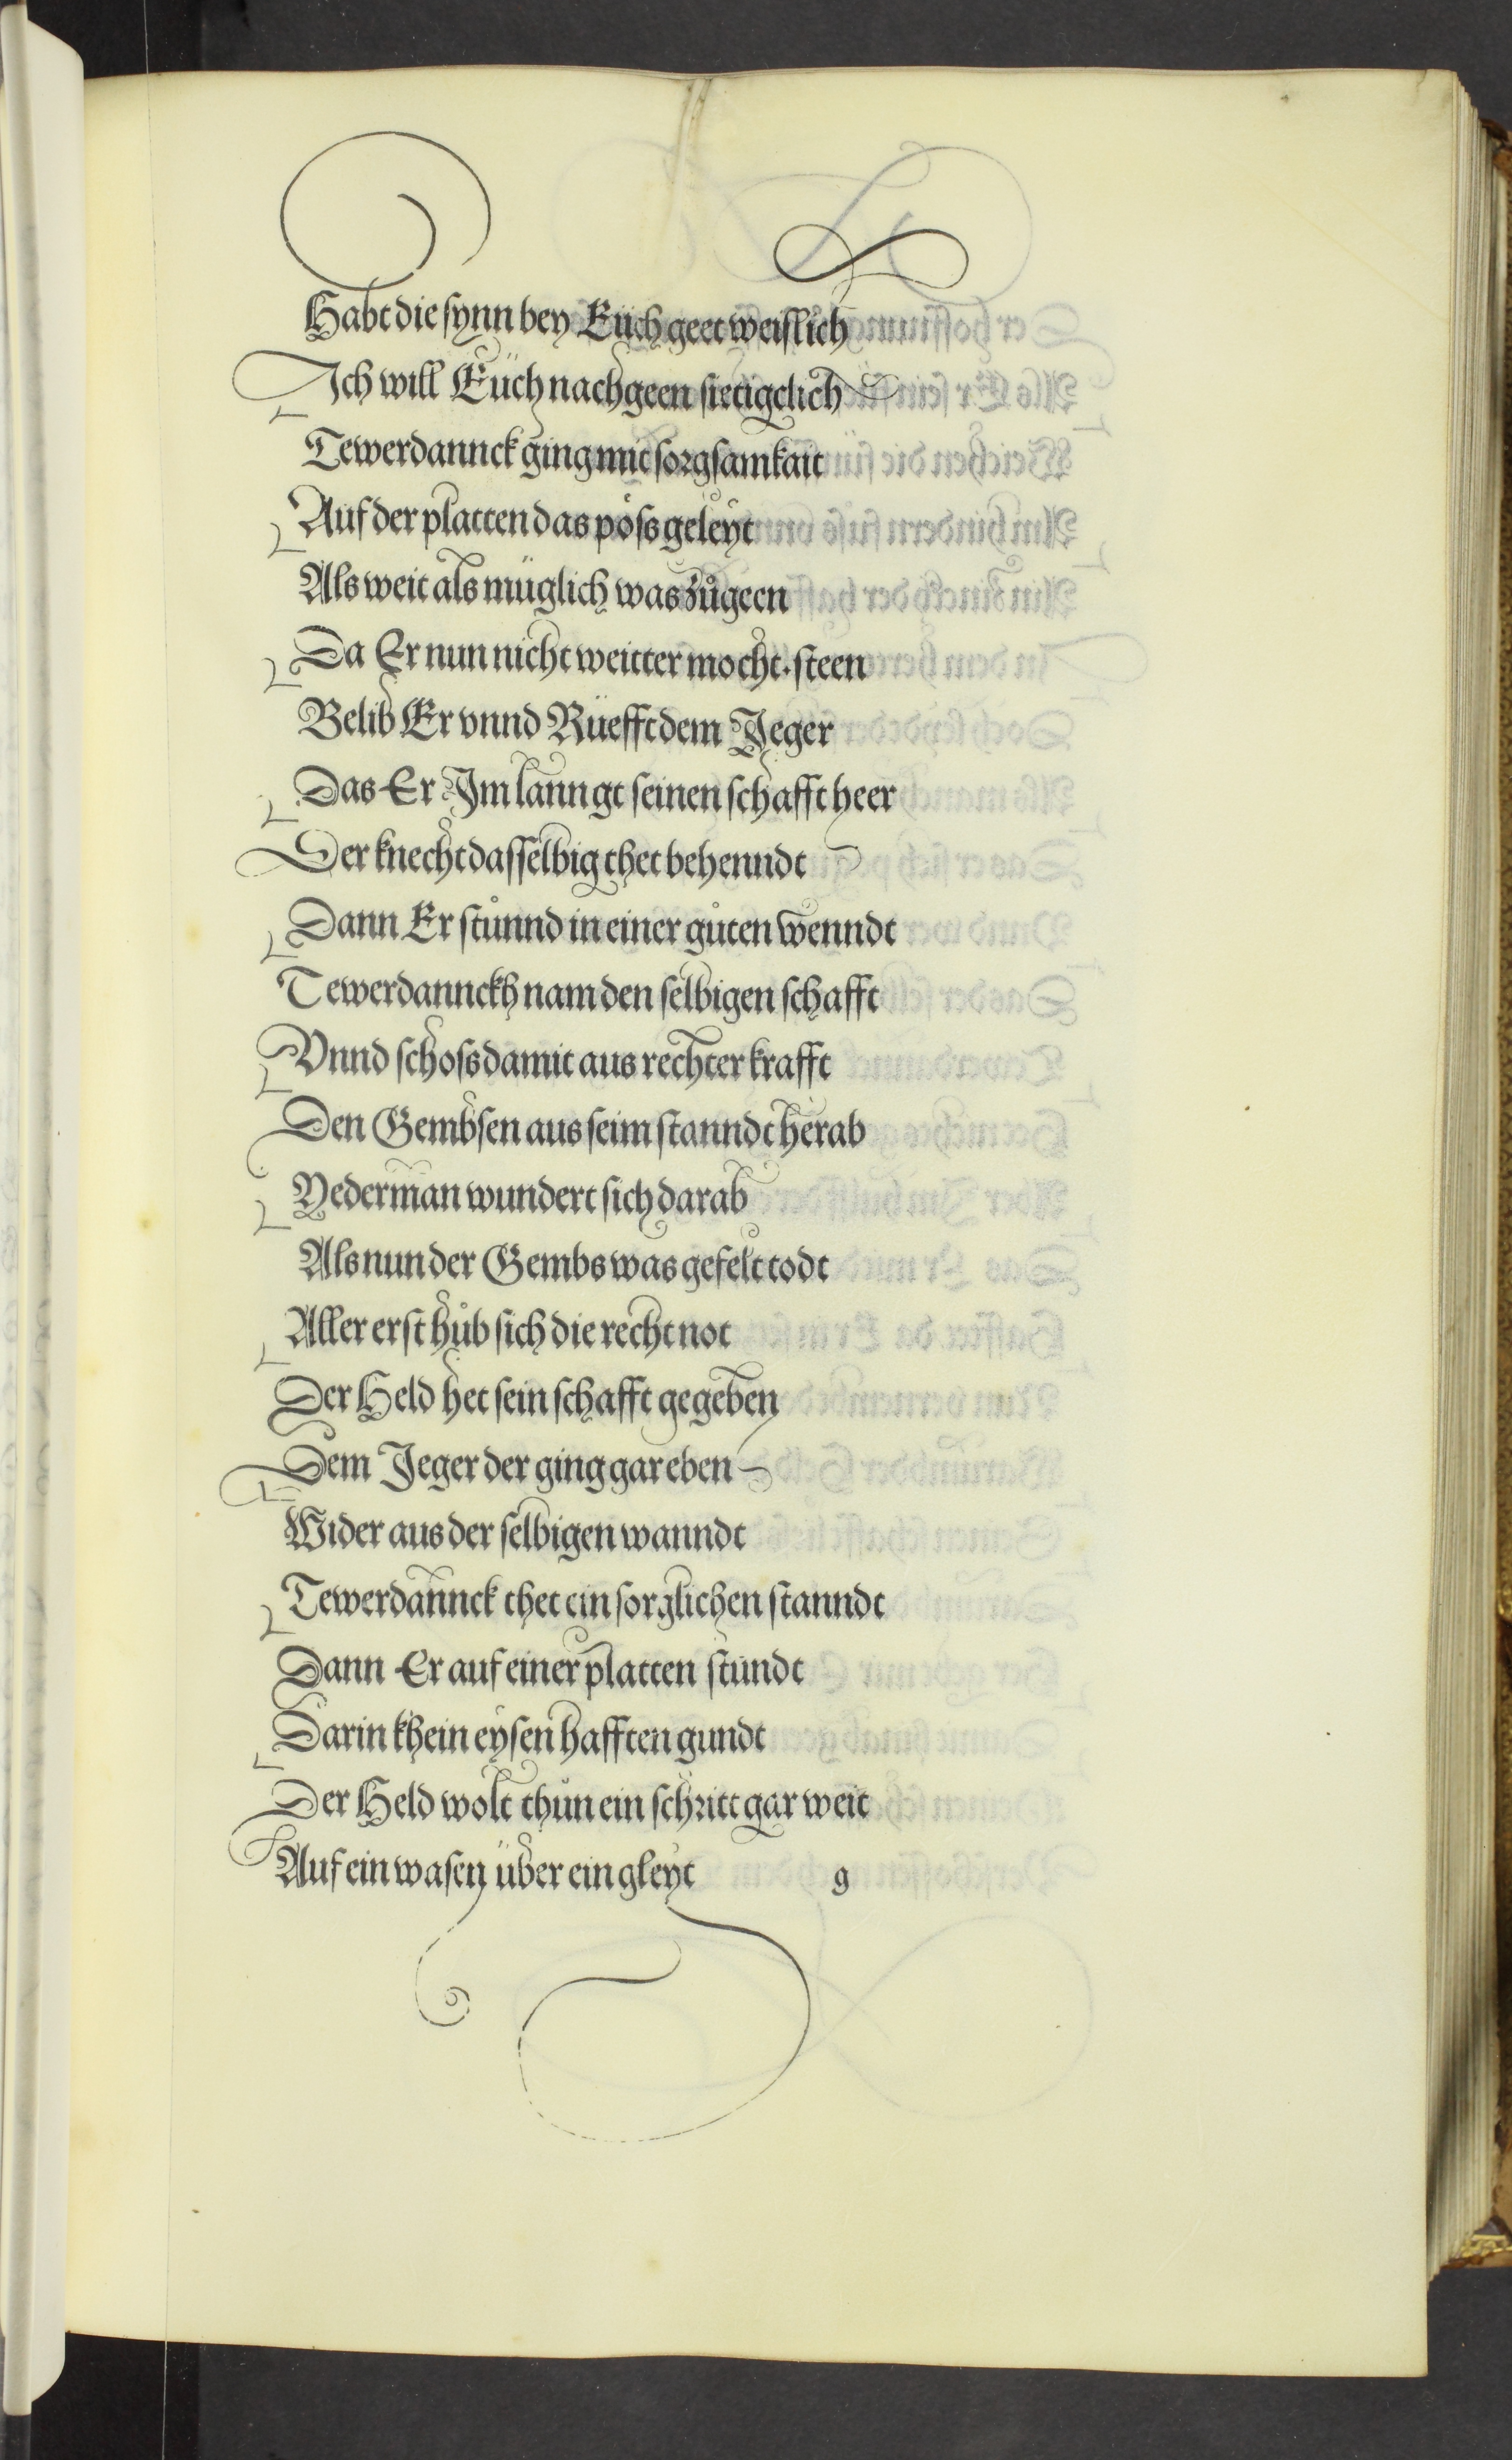 Habt die synn bey Eüch geet weislich
Ich will Eüch nachgeen sietigclich
Tewerdannck ging mit sorgsamkait
Auf der platten das pöss geleyt
Als weit als müglich was zůgeen
Da Er nun nicht weitter mocht steen
Belib Er vnnd Rüefft dem Jeger
Das Er Im lanngt seinen schafft heer
Der knecht dasselbig thet behenndt
Dann Er stůnnd in einer gůten wenndt
Tewerdannckh nam den selbigen schafft
Vnnd schoss damit aus rechter krafft
Den Gembsen aus seim stanndt herab
Yederman wundert sich darab
Als nun der Gembs was gefelt todt
Aller erst hůb sich die recht not
Der Held het sein schafft gegeben
Dem Jeger der ging gar eben
Wider aus der selbigen wanndt
Tewerdannck thet ein sorglichen stanndt
Dann Er auf einer platten stůndt
Darin khein eysen hafften gundt
Der Held wolt thůn ein schritt gar weit
Auf ein wasen über ein gleyt
g